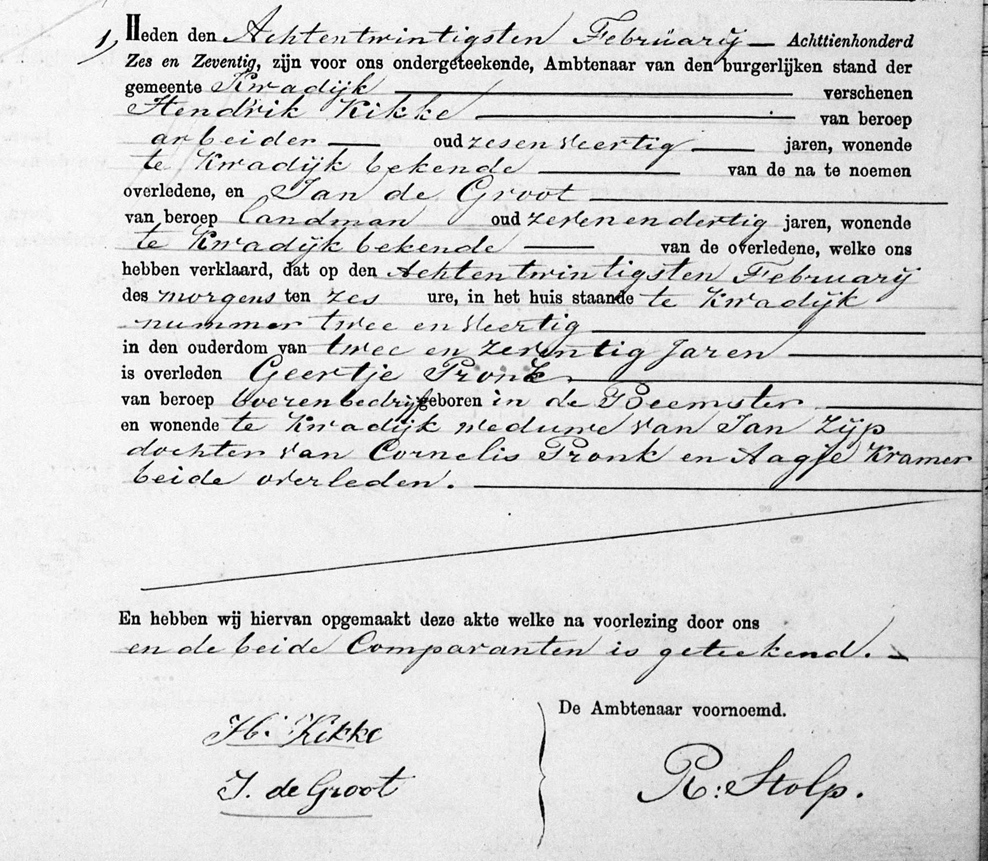 1, Heden den Achtentwintigsten Februarij Achttienhonderd
Zes en Zeventig, zijn voor ons ondergeteekende, Ambtenaar van den burgerlijken stand der
gemeente Kwadijk verschenen
Hendrik Kikke van beroep
arbeider oud zesenveertig jaren, wonende
te Kwadijk bekende van de na te noemen
overledene, en Jan de Groot
van beroep Landman oud zevenendertig jaren, wonende
te Kwadijk bekende van de overledene, welke ons
hebben verklaard, dat op den Achtentwintigsten Februarij
des morgens ten zes ure, in het huis staande te Kwadijk
nummer twee en veertig
in den ouderdom van twee en zeventig jaren
is overleden Geertje Pronk
van beroep boerenbedrijf geboren in de Beemster
en wonende te Kwadijk weduwe van Jan Zijp
dochter van Cornelis Pronk en Aagje Kramer
beide overleden.
En hebben wij hiervan opgemaakt deze akte welke na voorlezing door ons
en de beide Comparanten is geteekend.
De Ambtenaar voornoemd.
H. Kikke
J. de Groot
R: Stolp.